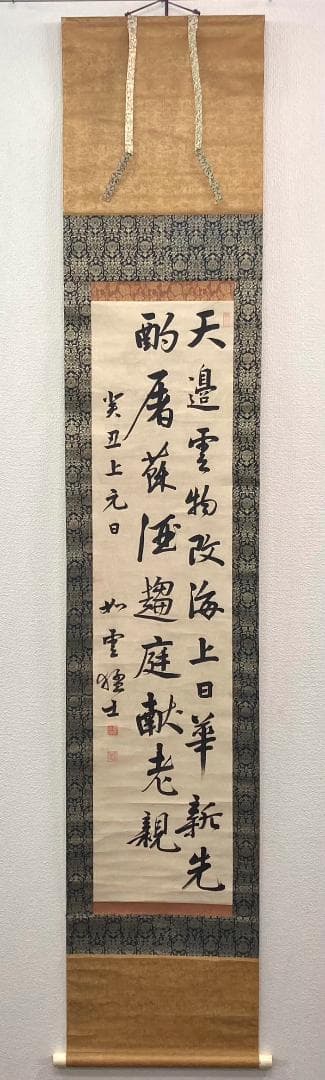 天邉雲物改海上日華新先
酌屠蘇酒趨庭献老親
癸丑上元日 如雲